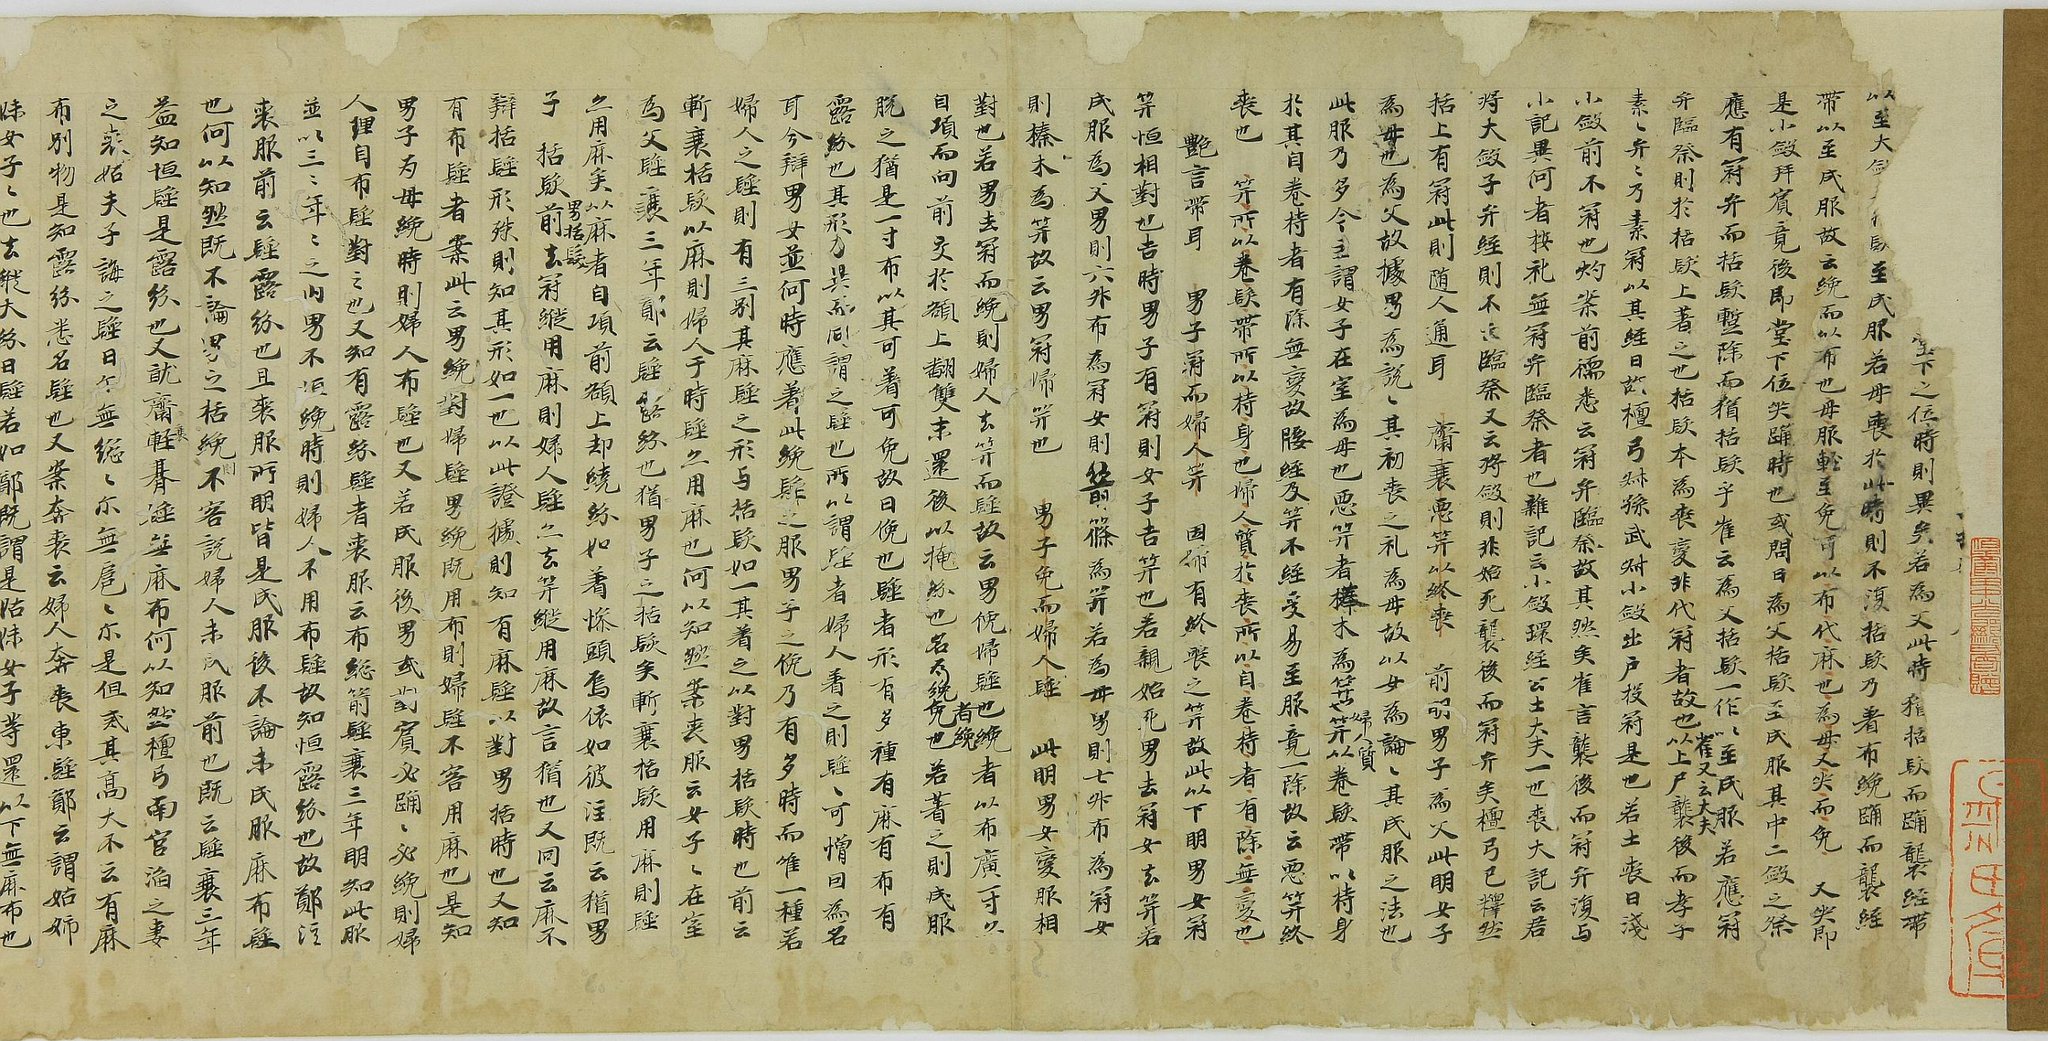 堂下之位時則異矣若為父此時猶括髮而踊襲絰帶
以至大斂
括髮至成服若母喪於此時則不復括髮乃著布絻踊而襲絰
帶以至成服故云絻而以布也母服輕至免可以布代麻也為母又哭而免 又哭即
是小斂拜賓竟後即堂下位哭踊時也或問曰為父括髮至成服其中二斂之祭
應有冠弁而括髮蹔除而猶括髮乎崔云為父括髮一作以至成服若應冠
弁臨祭則於括髮上著之也括髮本為喪變非代冠者故也以上尸襲後而孝子
崔又云大夫
素〻弁〻乃素冠以其絰日故檀弓叔孫武叔小斂出戶投冠是也若士喪日淺
小斂前不冠也灼案前儒悉云冠弁臨祭故其然矣崔言襲後而冠弁復与
小記異何者按礼無冠弁臨祭者也雜記云小斂環絰公士大夫一也喪大記云君
将大斂子弁絰則不云臨祭又云将斂則非始死襲後而冠弁矣檀弓已釋然
括上有冠此則随人通耳 齊衰悪笄以終喪 前明男子為父此明女子
為母也為父故據男為説〻其初喪之礼為母故以女為論〻其成服之法也
此服乃多今主謂女子在室為母也悪笄者榛木為笄也笄以卷髮帶以持身
婦人質
於其自卷持者有除無變故腰絰及笄不經受易至服竟一除故云悪笄終
喪也 笄所以卷髮帶所以持身也婦人質於喪所以自卷持者有除無變也
艷言帶耳 男子冠而婦人笄 因備有終喪之笄故此以下明男女冠
笄恒相對也吉時男子有冠則女子吉笄也若親始死男去冠女去笄若
成服為父男則六升布為冠女則箭篠為笄若為母男則七升布為冠女
則榛木為笄故云男冠婦笄也 男子免而婦人髽 此明男女變服相
對也若男去冠而絻則婦人去笄而髽故云男俛婦髽也絻者以布廣一寸以
自項而向前交於額上翻雙末還後以掩紒也名為絻
者絻
免也若著之則成服
脱之猶是一寸布以其可著可免故曰俛也髽者形有多種有麻有布有
露紒也其形乃異而同謂之髽也所以謂髽者婦人着之則髽〻可憎因為名
耳今辯男女並何時應著此絻髽之服男子之俛乃有多時而唯一種若
婦人之髽則有三別其麻髽之形与括髮如一其著之以對男括髮時也前云
斬衰括髮以麻則婦人于時髽亦用麻也何以知然案喪服云女子〻在室
為父髽衰三年鄭云髽露紒也猶男子之括髮矣斬衰括髮用麻則髽
亦用麻矣以麻者自項前額上却繞紒如着幓頭焉依如彼注既云猶男
子 括髮前去冠縰用麻則婦人髽亦去笄縰用麻故言猶也又同云麻不
男括髮
辯括髽形殊則知其形如一也以此證據則知有麻髽以對男括時也又知
有布髽者案此云男絻對婦髽男絻既用布則婦髽不容用麻也是知
男子為母絻時則婦人布髽也又若成服後男或對賓必踊〻必絻則婦
人理自布髽對之也又知有露紒髽者喪服云布總箭髽衰三年明知此服
並以三〻年〻之内男不恒絻時則婦人不用布髽故知恒露紒也故鄭注
喪服前云髽露紒也且喪服所明皆是成服後不論未成服麻布髽
也何以知然既不論男之括絻則不容説婦人未成服前也既云髽衰三年
益知恒髽是露紒也又就齊衰輕朞髽無麻布何以知然檀弓南宮滔之妻
之喪姑夫子誨之髽曰尔無緫〻尔無扈〻尔是但戒其高大不云有麻
布別物是知露紒悉名髽也又案奔喪云婦人奔喪東髽鄭云謂姑姉
妹女子〻也去縰大紒曰髽若如鄭既謂是姑妹女子等還以下無麻布也